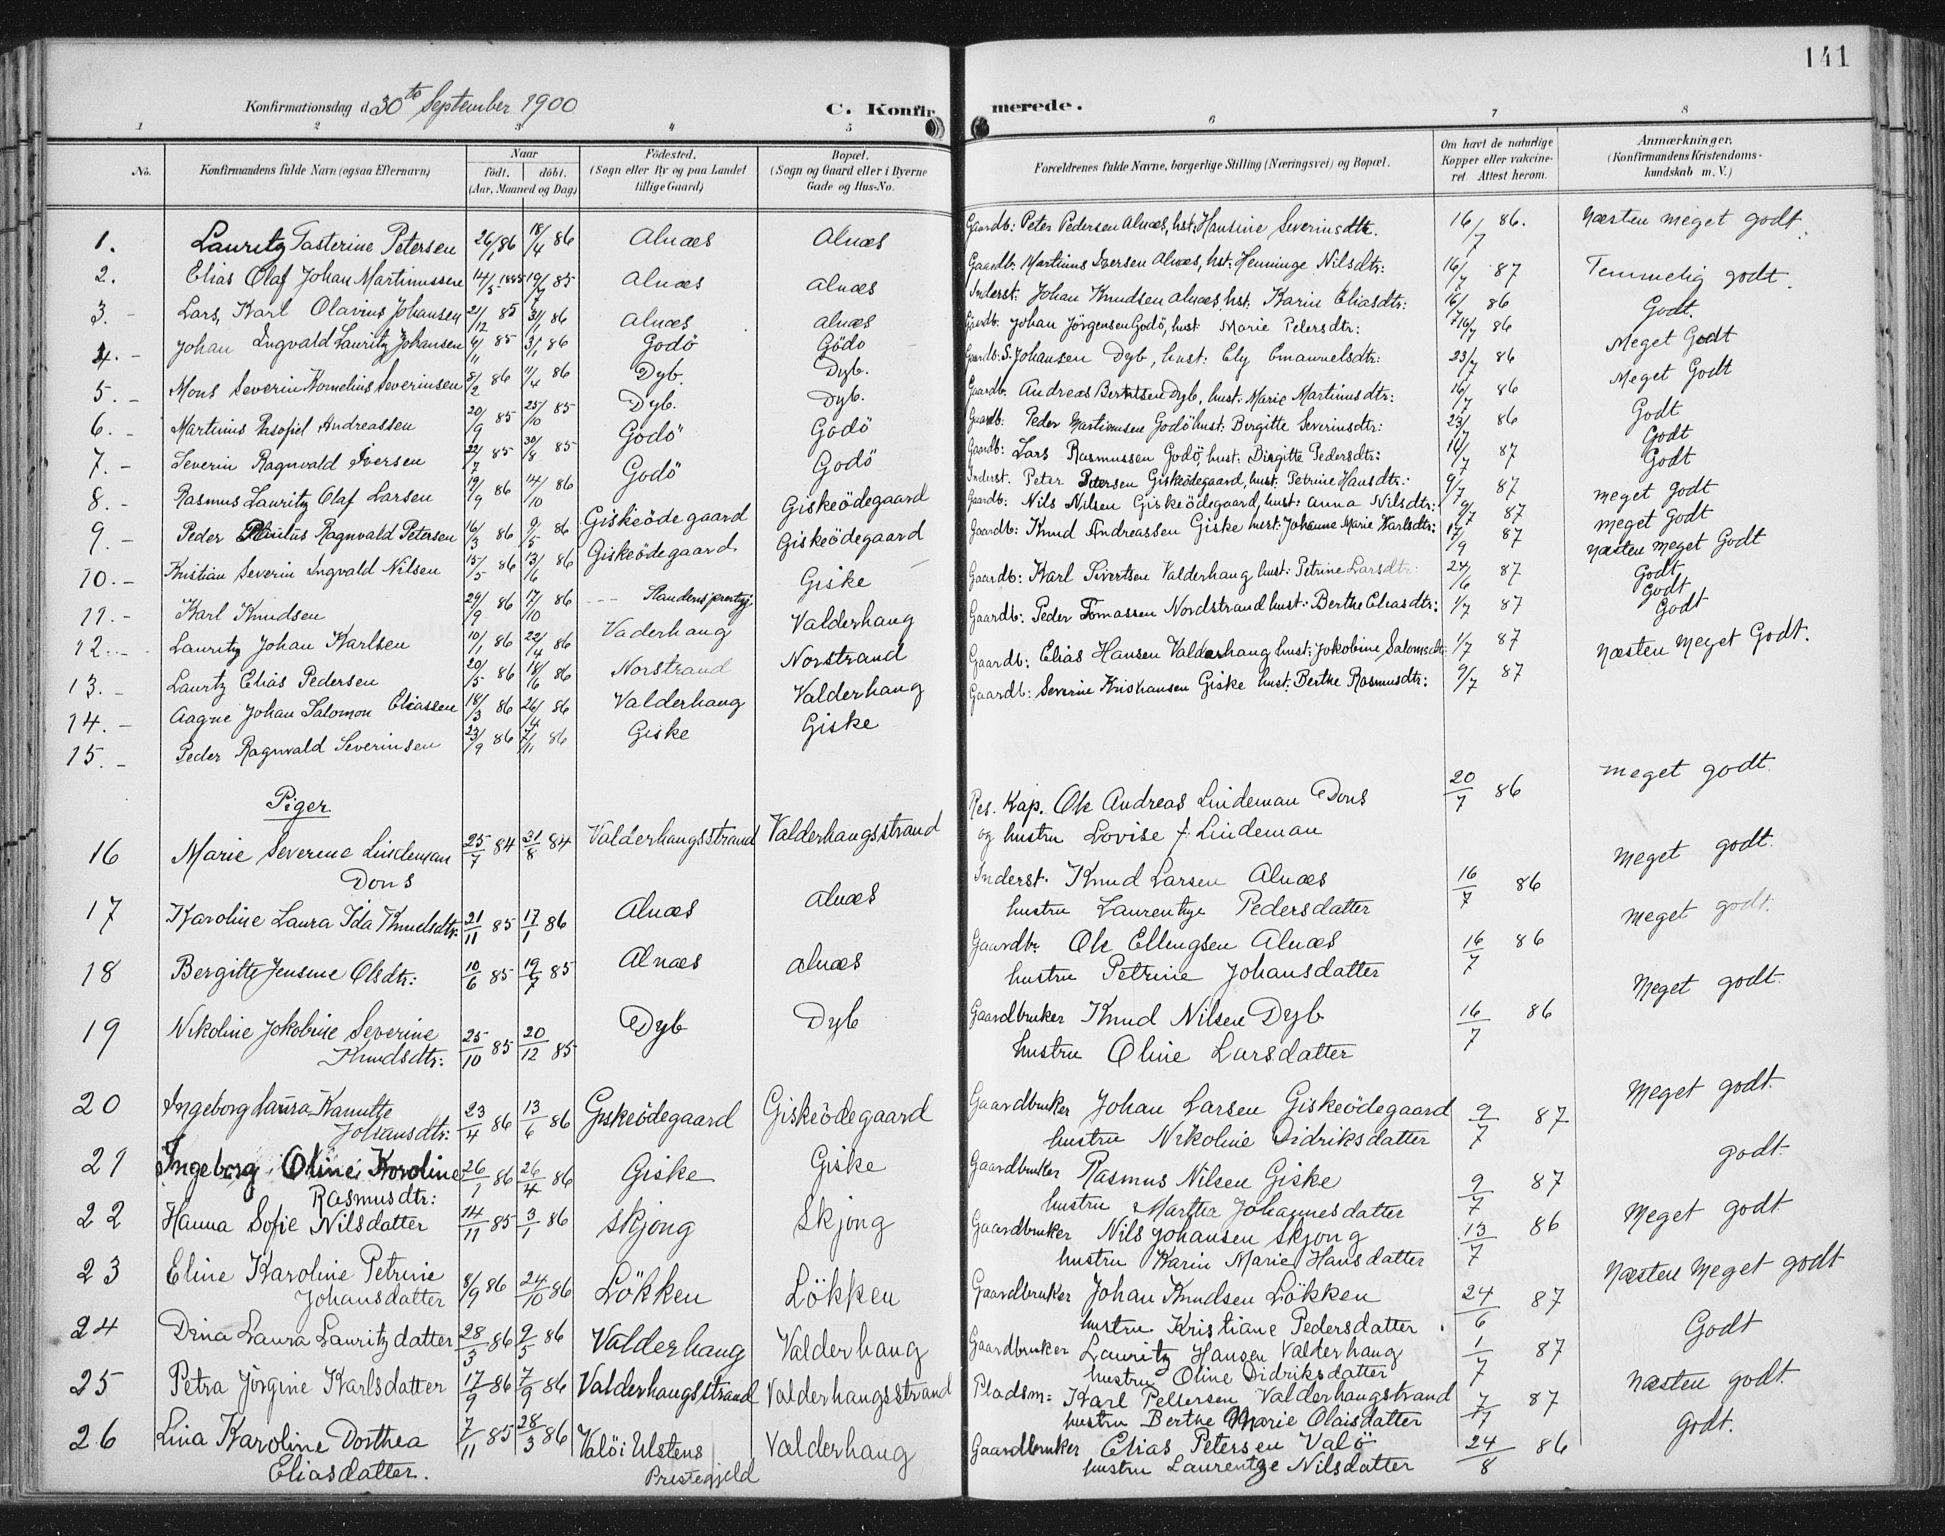 141
Konfirmationsdag d. 30te September 1900 C. Konfirmerede.
1 2 3 4 5 6 7 8
No. Konfirmandens fulde Navn (ogsaa Efternavn) Naar født. døbt. (Aar, Maaned og Dag) Fødested. (Sogn eller By og paa Landet tillige Gaard) Bopæl. (Sogn og Gaard eller i Byerne Gade og Hus-No. Forældrenes fulde Navne, borgerlige Stilling (Næringsvei) og Bopæl. Om havt de naturlige Kopper eller vakcineret. Attest herom. Anmærkninger. (Konfirmandens Kristendomskundskab m. V.)
1. Lauritz Tasterine Petersen 26/1 86 18/4 86 Alnæs Alnæs Gaardb: Peter Pedersen Alnæs, hst: Hansine Severinsdtr. 16/7 86. Næsten meget godt.
2. Elias Olaf Johan Martinussen 14/5 1885 19/7 85 Alnæs Alnæs Gaardb. Martinus Iversen Alnæs, hst: Henninge Nilsdtr: 16/7 87 Temmelig godt.
3. - Lars, Karl Olavius Johansen 21/12 85 31/1 86 Alnæs Alnæs Inderst: Johan Knudsen Alnæs hst: Karin Eliasdtr: 16/7 86 Godt.
4. - Johan Ingvald Lauritz Johansen 6/11 85 3/1 86 Godö Godö Gaardb: Johan Jörgensen Godö, hust Marie Petersdtr: 16/7 86 Meget Godt
5. - Mons Severin Kornelius Severinsen 8/2 86 11/4 86 Dyb. Dyb. Gaardb: S. Johansen Dyb, hust: Ely Emanuelsdtr: 23/7 86 Meget Godt
6. - Martinus Andreassen 20/9 85 25/10 85 Dyb. Dyb. Gaardb. Andreas Berntsen Dyb, hust: Marie Martinusdtr: 16/7 86 Godt
7. - Severin Ragnvald Iversen 22/7 85 30/8 85 Godö Godö Gaardb: Peder Martinusen Godö hust: Bergitte Severinsdtr: 23/7 86 Godt
8. - Rasmus Lauritz Olaf Larsen 19/9 86 14/10 86 Godö Godö Gaardb: Lars Rasmussen Godö, hust: Birgitte Pedersdtr: 16/7 87 Godt
9. - Peder Ragnvald Petersen 16/3 86 9/5 86 Giskeödegaard Giskeödegaard Inderst. Peter Petersen Giskeödegaard, hust. Petrine Hansdtr: 9/7 87 meget godt
10. - Kristian Severin Ingvald Nilsen 15/5 86 13/6 86 Giskeödegaard Giskeödegaard Gaardb: Nils Nilsen Giskeödegaard, hust: Anna Nilsdtr: 9/7 87 meget Godt
11. - Karl Knudsen 29/9 86 17/10 86 Giske Gaardb: Knud Andreassen Giske hust: Johanne Marie Karlsdtr: 17/9 87 Næsten Meget Godt
12. - Lauritz Johan Karlsen 10/1 86 22/4 86 Vaderhaug Valderhaug Gaardb: Karl Sivertsen Valderhaug hust: Petrine Larsdtr: 24/6 87 Godt
13. - Lauritz Elias Pedersen 20/5 86 18/6 86 Norstrand Norstrand Gaardb: Peder Tomassen Nordstrand hust: Berthe Eliasdtr: 1/7 87 Godt
14. - Aagne Johan Salomon Eliassen 18/3 86 26/4 86 Valderhaug Valderhaug Gaardb: Elias Hansen Valderhaug hust: Jokobine Salomsdtr 1/7 87 Godt
15. - Peder Ragnvald Severinsen 23/9 86 7/11 86 Giske Giske Gaardb: Severin Kristiansen Giske hust: Berthe Rasmusdtr: 9/7 87 Næsten Meget Godt.
Piger
16 Marie Severine Lindeman 25/7 84 31/8 84 Valderhaugsstrand Valderhaugsstrand Res. Kap. Ole Andreas Lindeman Dons 20/7 86 meget godt.
Dons og hustru Lovise f. Lindeman
17 Karoline Laura Ida Knudsdtr: 21/11 85 17/1 86 Alnæs Alnæs Inderst. Knud Larsen Alnæs 16/7 86 Meget godt.
hustru Laurentze Pedersdatter
18 Bergitte Jensine Olsdtr: 10/6 85 19/7 85 Alnæs Alnæs Gaardbr Ole Ellingsen Alnæs 16/7 86 Meget godt.
hustru Petrine Johansdatter
19 Nikoline Jokobine Severine 25/10 85 20/12 85 Dyb Dyb Gaardbruker Knud Nilsen Dyb 16/7 86 Meget godt.
Knudsdtr: hustru Oline Larsdatter
20 Ingeborg Laura Kanutte 23/4 86 13/6 86 Giskeödegaard Giskeödegaard Gaardbruker Johan Larsen Giskeödegaard 9/7 87 Meget godt.
Johansdtr: hustru Nikoline Didriksdatter
21 Ingeborg Oline Karoline 26/1 86 26/4 86 Giske Giske Gaardbruker Rasmus Nilsen Giske 9/7 87 godt.
Rasmusdtr: hustru Martha Johannesdatter
22 Hanna Sofie Nilsdatter 14/11 85 3/1 86 Skjong Skjong Gaardbruker Nils Johansen Skjong 13/7 86 Meget godt
hustru Karin Marie Hansdatter
23 Eline Karoline Petrine 8/9 86 24/10 86 Lökken Lökken Gaardbruker Johan Knudsen Lökken 24/6 87 Næsten Meget godt
Johansdatter hustru Kristiane Pedersdatter
24 Dina Laura Lauritzdatter 28/3 86 9/5 86 Valderhaug Valderhaug Gaardbruker Lauritz Hansen Valderhaug 1/7 87 Godt
hustru Oline Didriksdatter
25 Petra Jörgine Karlsdatter 17/9 86 7/9 86 Valderhaugsstrand Valderhaugsstrand Pladsm: Karl Pettersen Valderhaugstrand 7/7 87 Næsten godt.
hustru Berthe Marie Olaisdatter
26 Lina Karoline Dorthea 7/11 85 28/3 86 Valö i Ulstens Valderhaug Gaardbruker Elias Petersen Valö 24/8 86 Godt.
Eliasdatter. Prestegjeld hustru Laurentze Nilsdatter